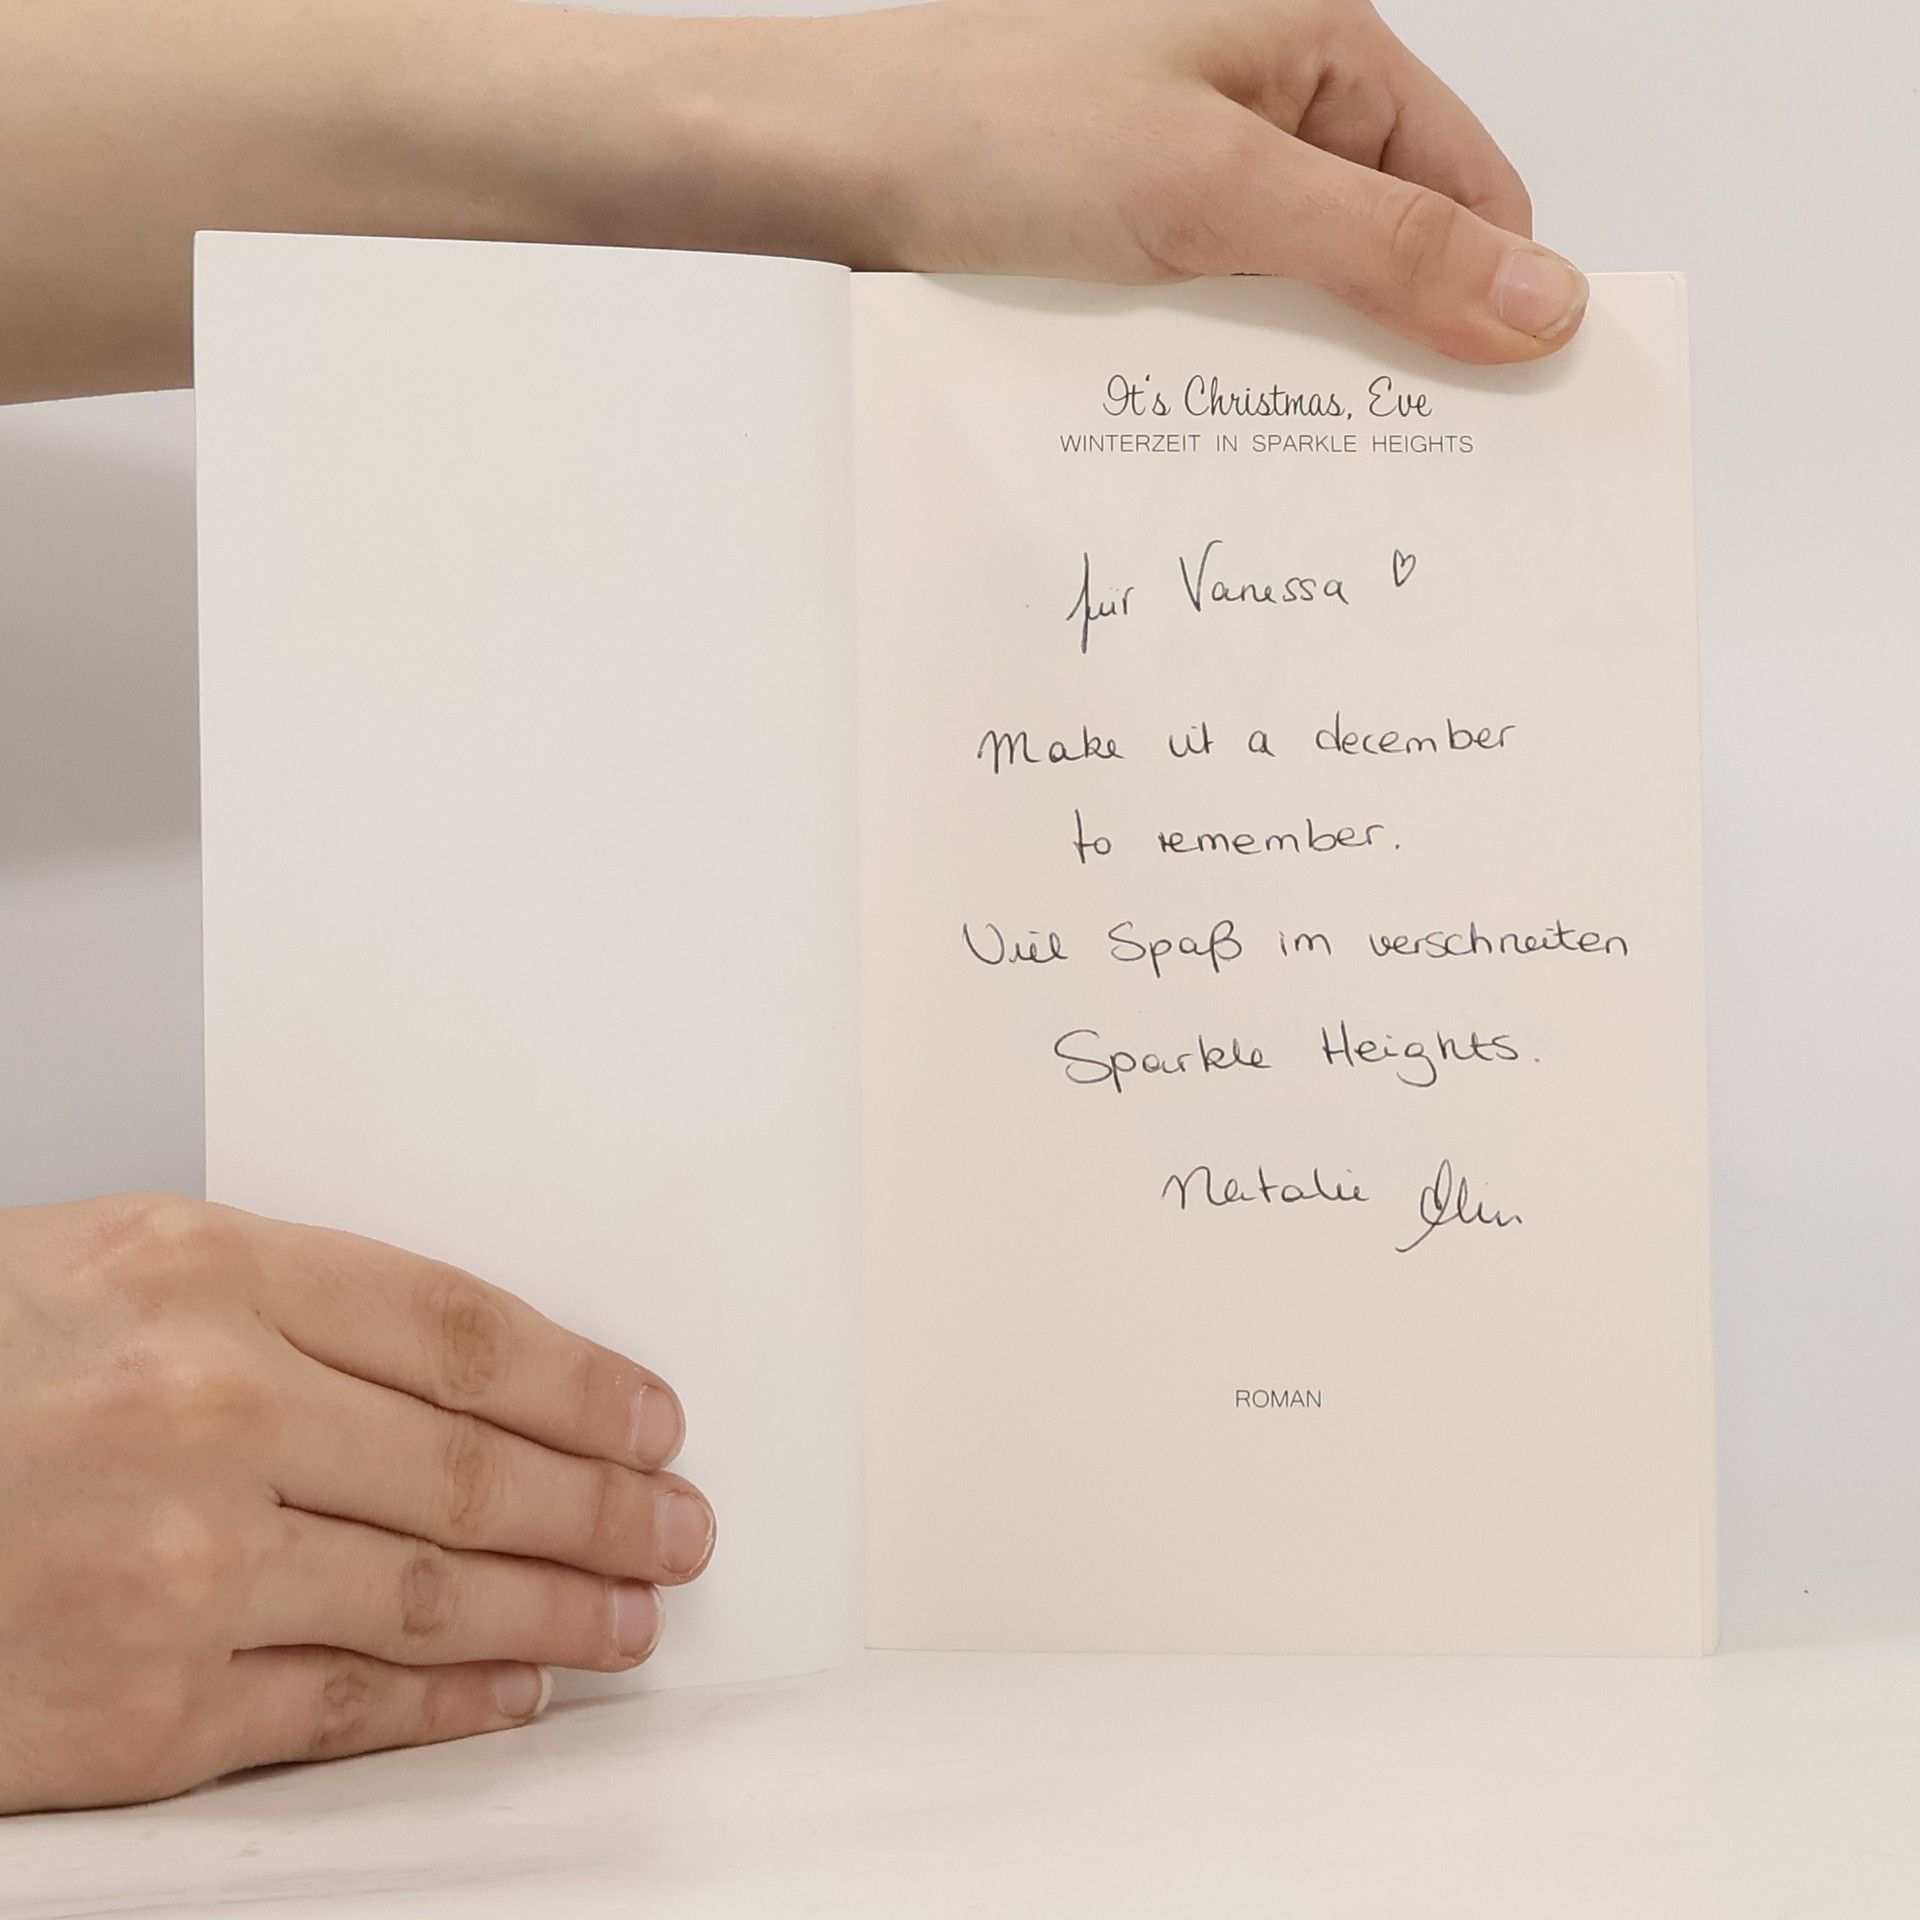 It's Christmas, Eve
WINTERZEIT IN SPARKLE HEIGHTS
für Vanessa ♡
Make it a december
to remember.
Viel Spaß im verschneiten
Sparkle Heights.
Natalie
ROMAN